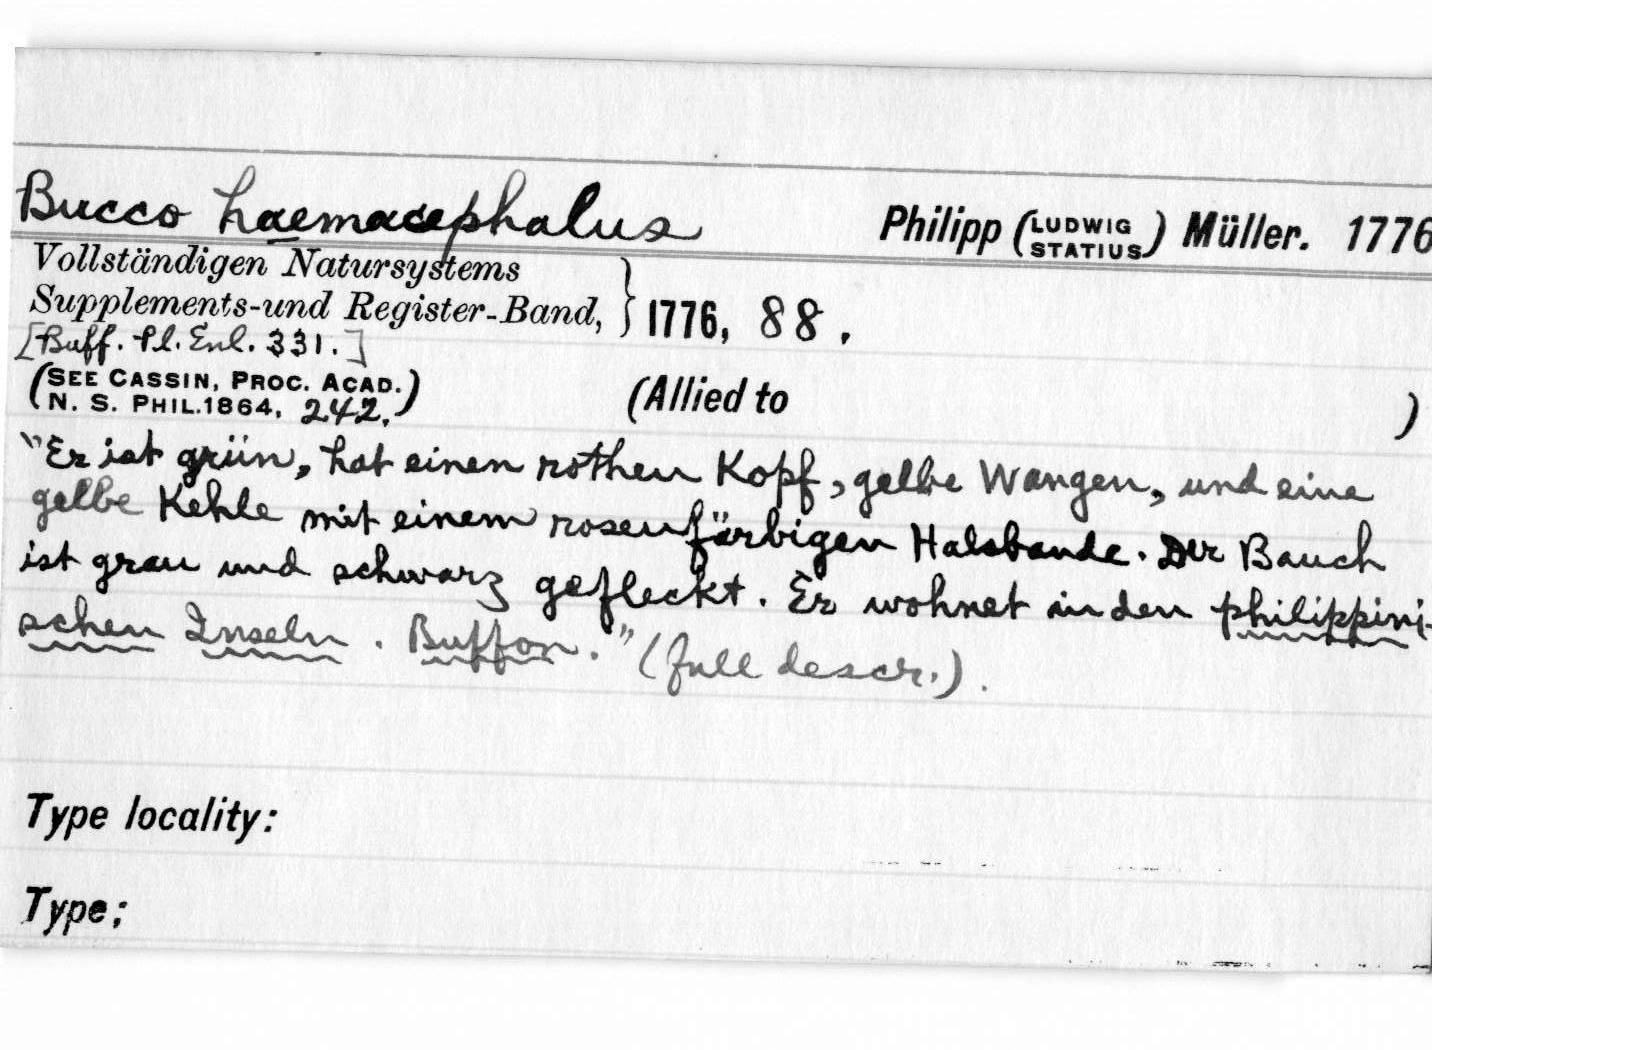 Bucco haemacephalus Philipp (LUDWIG STATIUS) Müller. 1776
Vollständigen Natursystems
Supplements-und Register-Band, } 1776, 88.
[Buff. Pl. Enl. 331.]
(SEE CASSIN, PROC. ACAD.
N. S. PHIL. 1864, 242.) (Allied to )
"Er ist grün, hat einen rothen Kopf, gelbe Wangen, und eine
gelbe Kehle mit einem rosenfärbigen Halsbande. Der Bauch
ist grau und schwarz gefleckt. Er wohnet in den philippini-
schen Inseln. Buffon." (full descr.).
Type locality:
Type;